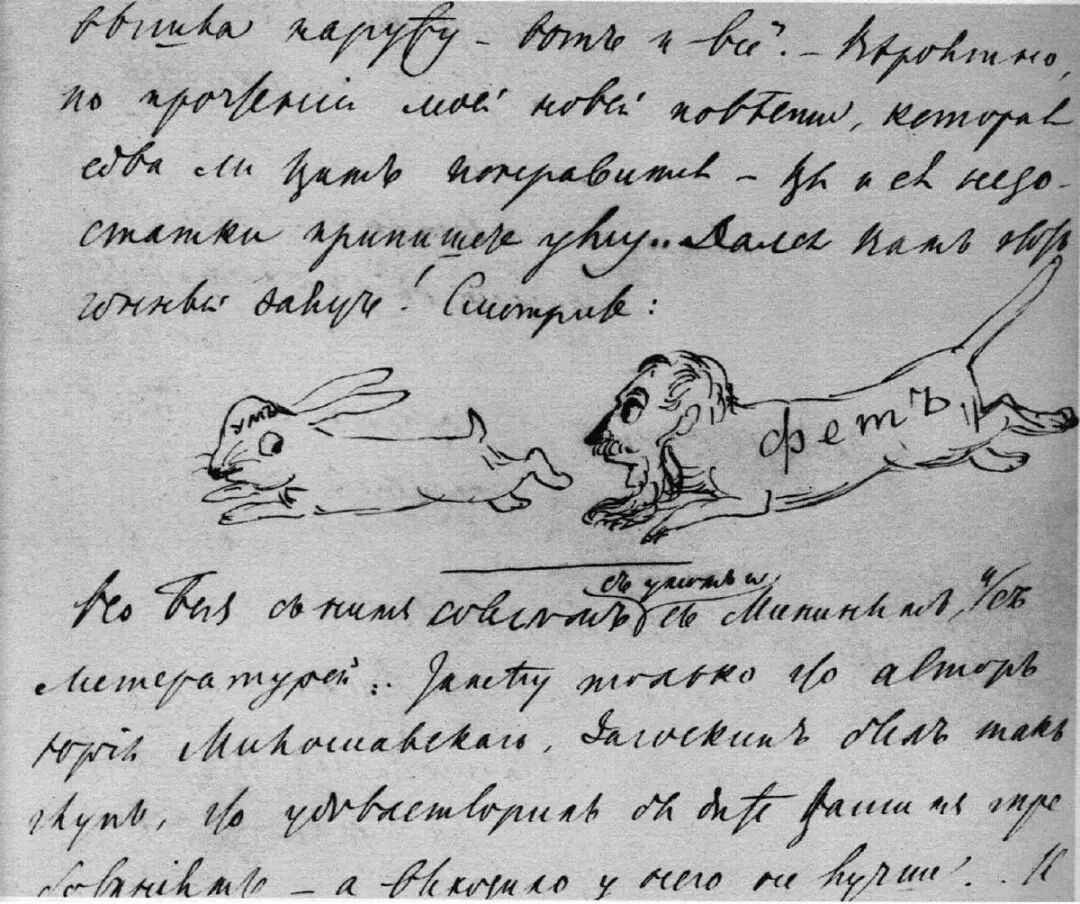 вышла наружу – вотъ и всё". – Вѣроятно,
по прочтеніи моей новой повѣсти, которая
едва ли Вамъ понравится – Вы и ея недо-
статки припишете уму.. Дался Вамъ
гонный заяцъ! Смотрите:
умъ
фетъ
съ умомъ и
съ нимъ совсѣмъ съ Мининымъ, и съ
литературой. Замѣчу только что авторъ
Юрія Милославскаго, Загоскинъ былъ такъ
глупъ, что удовлетворилъ бы Вашимъ тре
бованіямъ – а выходило у него не лучше!.. И